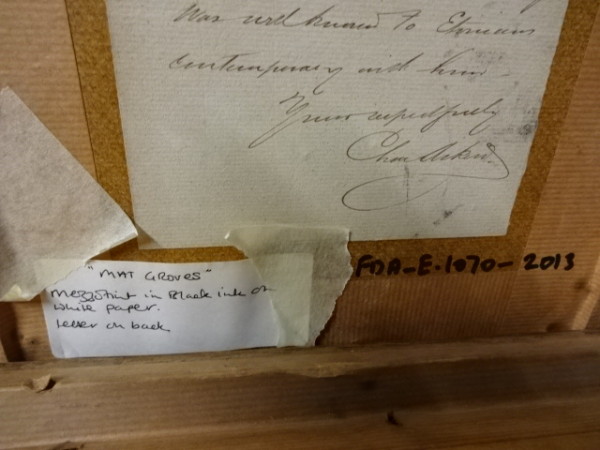 was well known to Etonians
contemporary with him.
Yours respectfully
Chas
FDA-E.1070-2013
"MAT GROVES"
Mezzotint in Black ink on
white paper.
letter on back